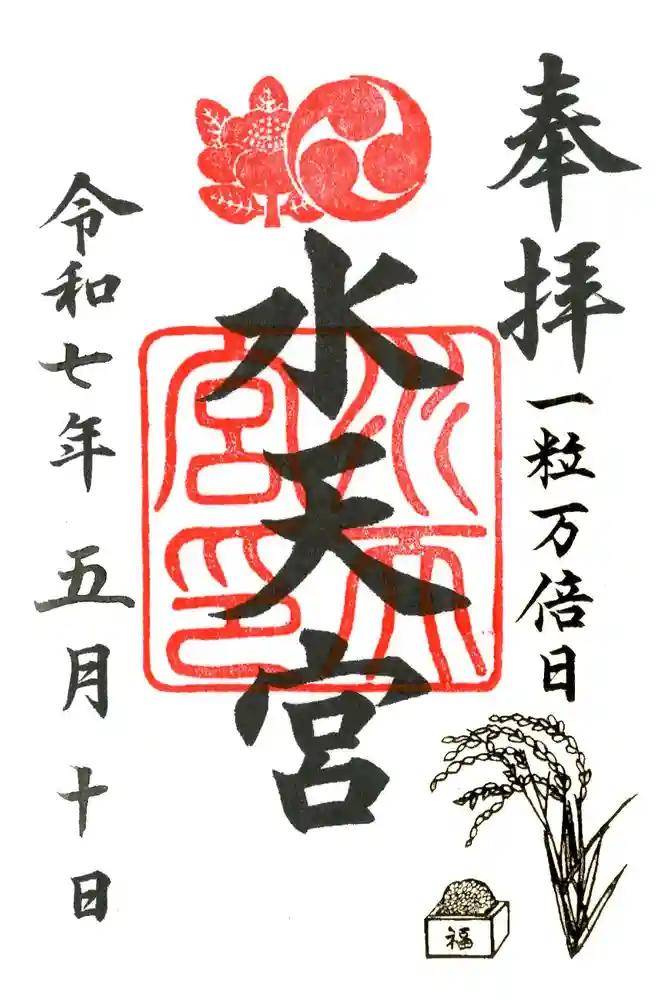 奉拝
一粒万倍日
水天宮
水天宮印
令和七年 五月十日
福